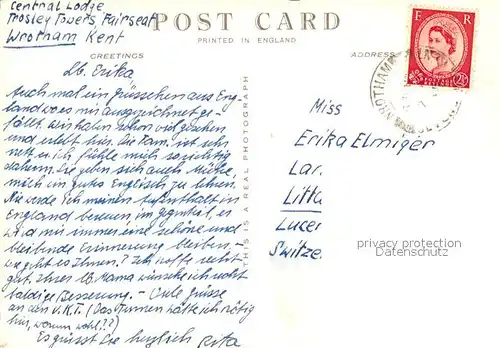 Central Lodge
Trosley Towers, Fairseat
Wrotham Kent
POST CARD
PRINTED IN ENGLAND
GREETINGS
ADDRESS
THIS IS A REAL PHOTOGRAPH
Lb. Erika,
Auch mal ein Grüsschen aus Eng-
land wo es mir ausgezeichnet ge-
fällt. Wir haben schon viel gesehen
und erlebt hier. Die Fam. ist sehr
nett u. ich fühle mich so richtig
daheim. Sie geben sich auch Mühe,
mich ein gutes Englisch zu lehren.
Nie werde ich meinen Aufenthalt in
England bereuen im Gegenteil, es
wird mir immer eine schöne und
bleibende Erinnerung bleiben. -
Wie geht es Ihnen? Ich hoffe recht
gut. Ihrer lb. Mama wünsche ich recht
baldige Besserung. - Viele Grüsse
an den V.K.T. (Das Turnen hätte ich nötig
hier, warum wohl??)
Es grüsst Sie herzlich Rita
Miss
Erika Elmiger
Lar.
Litta
Lucer
Switze.
E R
POSTAGE REVENUE
2½D
WROTHAM
privacy protection
Datenschutz